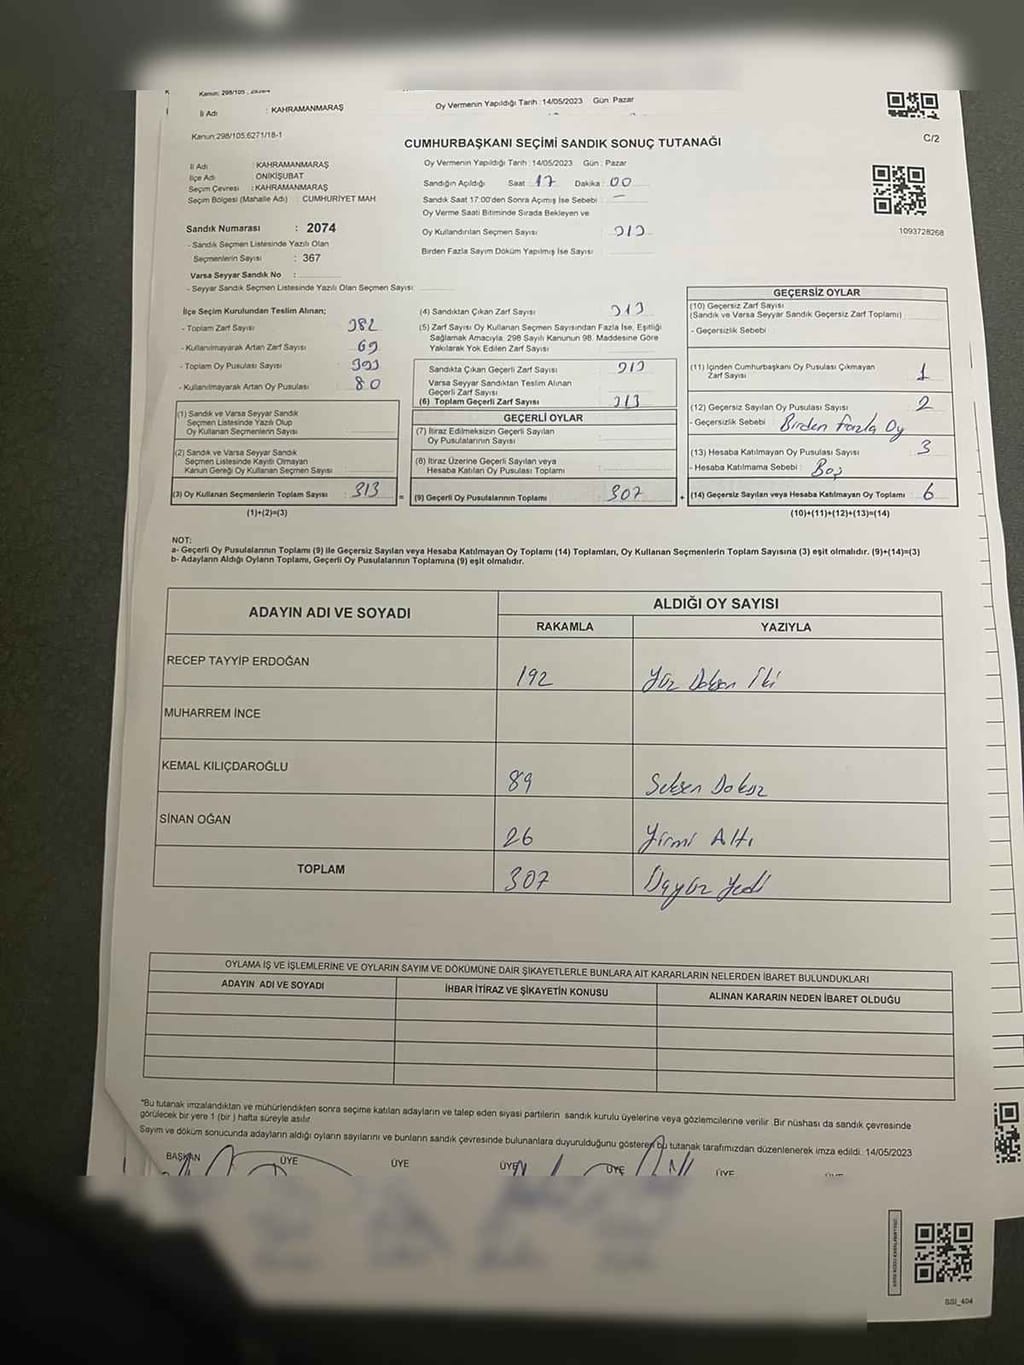 Kanun: 298/105
İl Adı : KAHRAMANMARAŞ
Oy Vermenin Yapıldığı Tarih :14/05/2023 Gün: Pazar
Kanun:298/105.6271/18-1
CUMHURBAŞKANI SEÇİMİ SANDIK SONUÇ TUTANAĞI
C/2
İl Adı : KAHRAMANMARAŞ
İlçe Adı : ONİKİŞUBAT
Seçim Çevresi : KAHRAMANMARAŞ
Seçim Bölgesi (Mahalle Adı) : CUMHURİYET MAH
Sandık Numarası : 2074
- Sandık Seçmen Listesinde Yazılı Olan
Seçmenlerin Sayısı : 367
Varsa Seyyar Sandık No :
- Seyyar Sandık Seçmen Listesinde Yazılı Olan Seçmen Sayısı:
Oy Vermenin Yapıldığı Tarih : 14/05/2023 Gün : Pazar
Sandığın Açıldığı Saat : 17 Dakika : 00
Sandık Saat 17:00'den Sonra Açımış İse Sebebi : —
Oy Verme Saati Bitiminde Sırada Bekleyen ve
Oy Kullandırılan Seçmen Sayısı : 313
Birden Fazla Sayım Döküm Yapılmış İse Sayısı :
1093728268
İlçe Seçim Kurulundan Teslim Alınan;
- Toplam Zarf Sayısı : 382
- Kullanılmayarak Artan Zarf Sayısı : 69
- Toplam Oy Pusulası Sayısı : 393
- Kullanılmayarak Artan Oy Pusulası : 80
(1) Sandık ve Varsa Seyyar Sandık
Seçmen Listesinde Yazılı Olup
Oy Kullanan Seçmenlerin Sayısı
(2) Sandık ve Varsa Seyyar Sandık
Seçmen Listesinde Kayıtlı Olmayan
Kanun Gereği Oy Kullanan Seçmen Sayısı :
(3) Oy Kullanan Seçmenlerin Toplam Sayısı : 313
(1)+(2)=(3)
(4) Sandıktan Çıkan Zarf Sayısı : 313
(5) Zarf Sayısı Oy Kullanan Seçmen Sayısından Fazla İse, Eşitliği
Sağlamak Amacıyla, 298 Sayılı Kanunun 98. Maddesine Göre
Yakılarak Yok Edilen Zarf Sayısı :
Sandıkta Çıkan Geçerli Zarf Sayısı : 313
Varsa Seyyar Sandıktan Teslim Alınan
Geçerli Zarf Sayısı
(6) Toplam Geçerli Zarf Sayısı : 313
GEÇERLİ OYLAR
(7) İtiraz Edilmeksizin Geçerli Sayılan
Oy Pusulalarının Sayısı
(8) İtiraz Üzerine Geçerli Sayılan veya
Hesaba Katılan Oy Pusulası Toplamı :
= (9) Geçerli Oy Pusulalarının Toplamı : 307
GEÇERSİZ OYLAR
(10) Geçersiz Zarf Sayısı
(Sandık ve Varsa Seyyar Sandık Geçersiz Zarf Toplamı) :
- Geçersizlik Sebebi :
(11) İçinden Cumhurbaşkanı Oy Pusulası Çıkmayan
Zarf Sayısı : 1
(12) Geçersiz Sayılan Oy Pusulası Sayısı : 2
- Geçersizlik Sebebi : Birden Fazla Oy
(13) Hesaba Katılmayan Oy Pusulası Sayısı : 3
- Hesaba Katılmama Sebebi : Boş
+ (14) Geçersiz Sayılan veya Hesaba Katılmayan Oy Toplamı : 6
(10)+(11)+(12)+(13)=(14)
NOT:
a- Geçerli Oy Pusulalarının Toplamı (9) ile Geçersiz Sayılan veya Hesaba Katılmayan Oy Toplamı (14) Toplamları, Oy Kullanan Seçmenlerin Toplam Sayısına (3) eşit olmalıdır. (9)+(14)=(3)
b- Adayların Aldığı Oyların Toplamı, Geçerli Oy Pusulalarının Toplamına (9) eşit olmalıdır.
ADAYIN ADI VE SOYADI
ALDIĞI OY SAYISI
RAKAMLA YAZIYLA
RECEP TAYYİP ERDOĞAN 192 Yüz Doksan İki
MUHARREM İNCE
KEMAL KILIÇDAROĞLU 89 Seksen Dokuz
SİNAN OĞAN 26 Yirmi Altı
TOPLAM 307 Üçyüz Yedi
OYLAMA İŞ VE İŞLEMLERİNE VE OYLARIN SAYIM VE DÖKÜMÜNE DAİR ŞİKAYETLERLE BUNLARA AİT KARARLARIN NELERDEN İBARET BULUNDUKLARI
ADAYIN ADI VE SOYADI İHBAR İTİRAZ VE ŞİKAYETİN KONUSU ALINAN KARARIN NEDEN İBARET OLDUĞU
"Bu tutanak imzalandıktan ve mühürlendikten sonra seçime katılan adayların ve talep eden siyasi partilerin sandık kurulu üyelerine veya gözlemcilerine verilir. Bir nüshası da sandık çevresinde
görülecek bir yere 1 (bir ) hafta süreyle asılır
Sayım ve döküm sonucunda adayların aldığı oyların sayılarını ve bunların sandık çevresinde bulunanlara duyurulduğunu gösteren bu tutanak tarafımızdan düzenlenerek imza edildi. 14/05/2023
BAŞKAN ÜYE ÜYE ÜYE ÜYE ÜYE
SSI_404